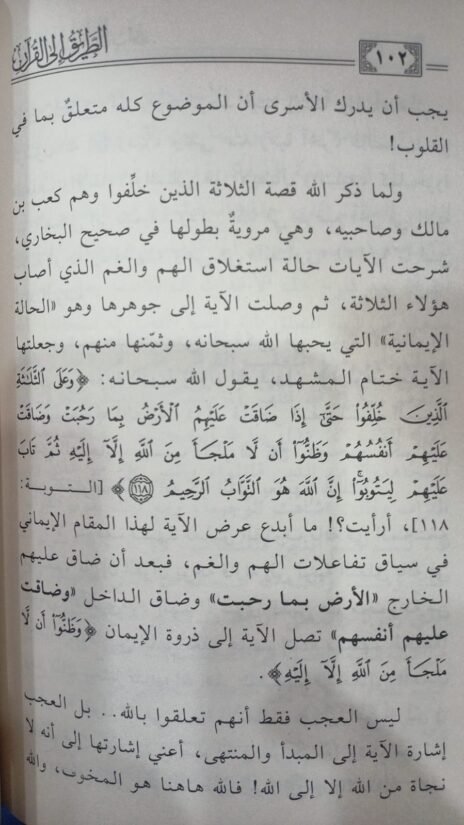 ١٠٢
الطريق إلى القرآن
يجب أن يدرك الأسرى أن الموضوع كله متعلقٌ بما في
القلوب!
ولما ذكر الله قصة الثلاثة الذين خلِّفوا وهم كعب بن
مالك وصاحبيه، وهي مرويةٌ بطولها في صحيح البخاري،
شرحت الآيات حالة استغلاق الهم والغم الذي أصاب
هؤلاء الثلاثة، ثم وصلت الآية إلى جوهرها وهو «الحالة
الإيمانية» التي يحبها الله سبحانه، وثمّنها منهم، وجعلتها
الآية ختام المشهد، يقول الله سبحانه: ﴿وَعَلَى ٱلثَّلَٰثَةِ
ٱلَّذِينَ خُلِّفُوا۟ حَتَّىٰٓ إِذَا ضَاقَتْ عَلَيْهِمُ ٱلْأَرْضُ بِمَا رَحُبَتْ وَضَاقَتْ
عَلَيْهِمْ أَنفُسُهُمْ وَظَنُّوٓا۟ أَن لَّا مَلْجَأَ مِنَ ٱللَّهِ إِلَّآ إِلَيْهِ ثُمَّ تَابَ
عَلَيْهِمْ لِيَتُوبُوٓا۟ۚ إِنَّ ٱللَّهَ هُوَ ٱلتَّوَّابُ ٱلرَّحِيمُ ١١٨﴾ [التوبة:
١١٨]، أرأيت؟! ما أبدع عرض الآية لهذا المقام الإيماني
في سياق تفاعلات الهم والغم، فبعد أن ضاق عليهم
الخارج «الأرض بما رحبت» وضاق الداخل «وضاقت
عليهم أنفسهم» تصل الآية إلى ذروة الإيمان ﴿وَظَنُّوٓا۟ أَن لَّا
مَلْجَأَ مِنَ ٱللَّهِ إِلَّآ إِلَيْهِ﴾.
ليس العجب فقط أنهم تعلقوا بالله.. بل العجب
إشارة الآية إلى المبدأ والمنتهى، أعني إشارتها إلى أنه لا
نجاة من الله إلا إلى الله! فالله هاهنا هو المخوف، والله